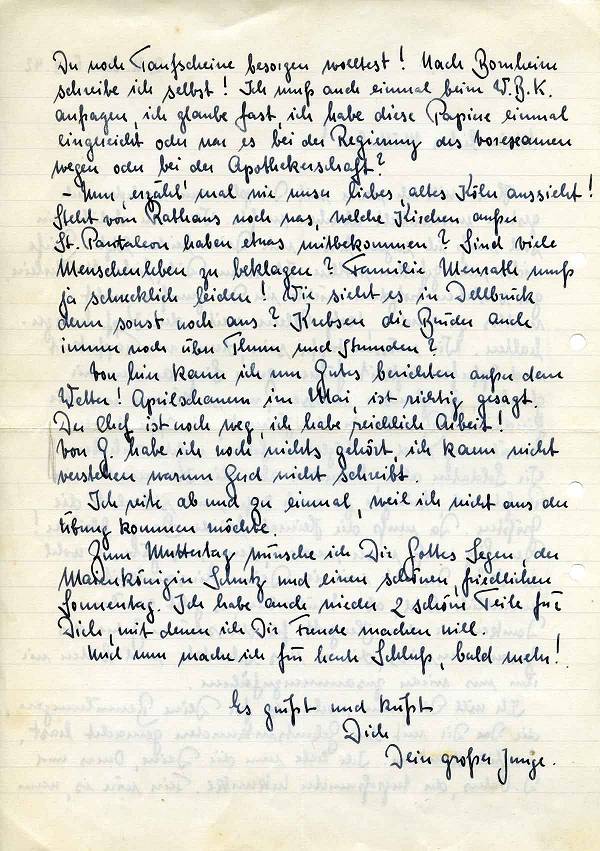 Du noch Taufscheine besorgen wolltest! Nach Bornheim
schreibe ich selbst! Ich muß auch einmal beim W.B.K.
anfragen, ich glaube fast ich habe diese Papiere einmal
eingereicht oder war es bei der Regierung des Vorexamens
wegen oder bei der Apothekerschaft?
– Nun, erzähl' mal wie unser liebes, altes Köln aussieht!
Steht vom Rathaus noch was, welche Kirchen außer
St. Pantaleon haben etwas mitbekommen? Sind viele
Menschenleben zu beklagen? Familie Menrath muß
ja schrecklich leiden! Wie sieht es in Dellbrück
denn sonst noch aus? Krebsen die Brüder auch
immer noch über Thurn und Strunden?
Von hier kann ich nur Gutes berichten außer dem
Wetter! Aprilschauer im Mai, ist richtig gesagt.
Der Chef ist noch weg, ich habe reichlich Arbeit!
Von G. habe ich noch nichts gehört, ich kann nicht
verstehen warum Gerd nicht schreibt.
Ich reite ab und zu einmal, weil ich nicht aus der
Übung kommen möchte.
Zum Muttertag wünsche ich Dir Gottes Segen, der
Maienkönigin Schutz und einen schönen, friedlichen
Sonnentag. Ich habe auch wieder 2 schöne Teile für
Dich, mit denen ich Dir Freude machen will.
Und nun mache ich für heute Schluß, bald mehr!
Es grüßt und küßt
Dich
Dein großer Junge.